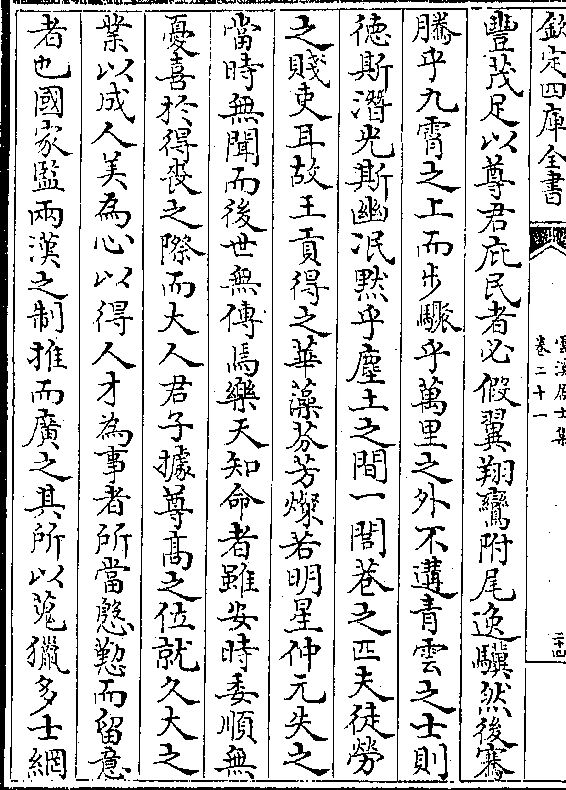 欽定四庫全書
雲溪居士集
卷二十一
二十四
豐茂足以尊君庇民者必假翼翔鸞附尾逸驥然後騫
騰乎九霄之上而步驟乎萬里之外不遘青雲之士則
徳斯潛光斯幽泯黙乎塵土之間一閭巷之匹夫徒勞
之賤吏耳故王貢得之華藻芬芳燦若明星仲元失之
當時無聞而後世無傳焉樂天知命者雖安時委順無
憂喜於得䘮之際而大人君子據尊髙之位就久大之
業以成人美為心以得人才為事者所當慇懃而留意
者也國家監兩漢之制推而廣之其所以蒐獵多士網